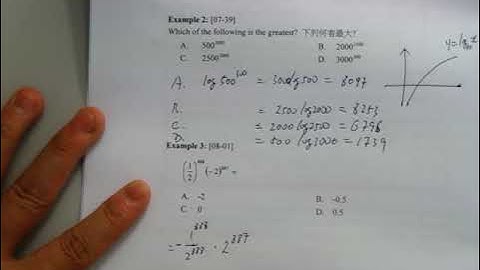 Example 2: [07-39]
Which of the following is the greatest? 下列何者最大?
A. 500³⁰⁰⁰ B. 2000²⁵⁰⁰
C. 2500²⁰⁰⁰ D. 3000⁵⁰⁰
y=log x
A. log 500 = 3000 log 500 = 8097
B. = 2500 log 2000 = 8253
C. = 2000 log 2500 = 6798
D. = 500 log 3000 = 1739
Example 3: [08-01]
(1/2)⁸⁸⁸ (-2)⁸⁸⁷ =
A. -2 B. -0.5
C. 0 D. 0.5
= - 1⁸⁸⁸/2⁸⁸⁸ · 2⁸⁸⁷